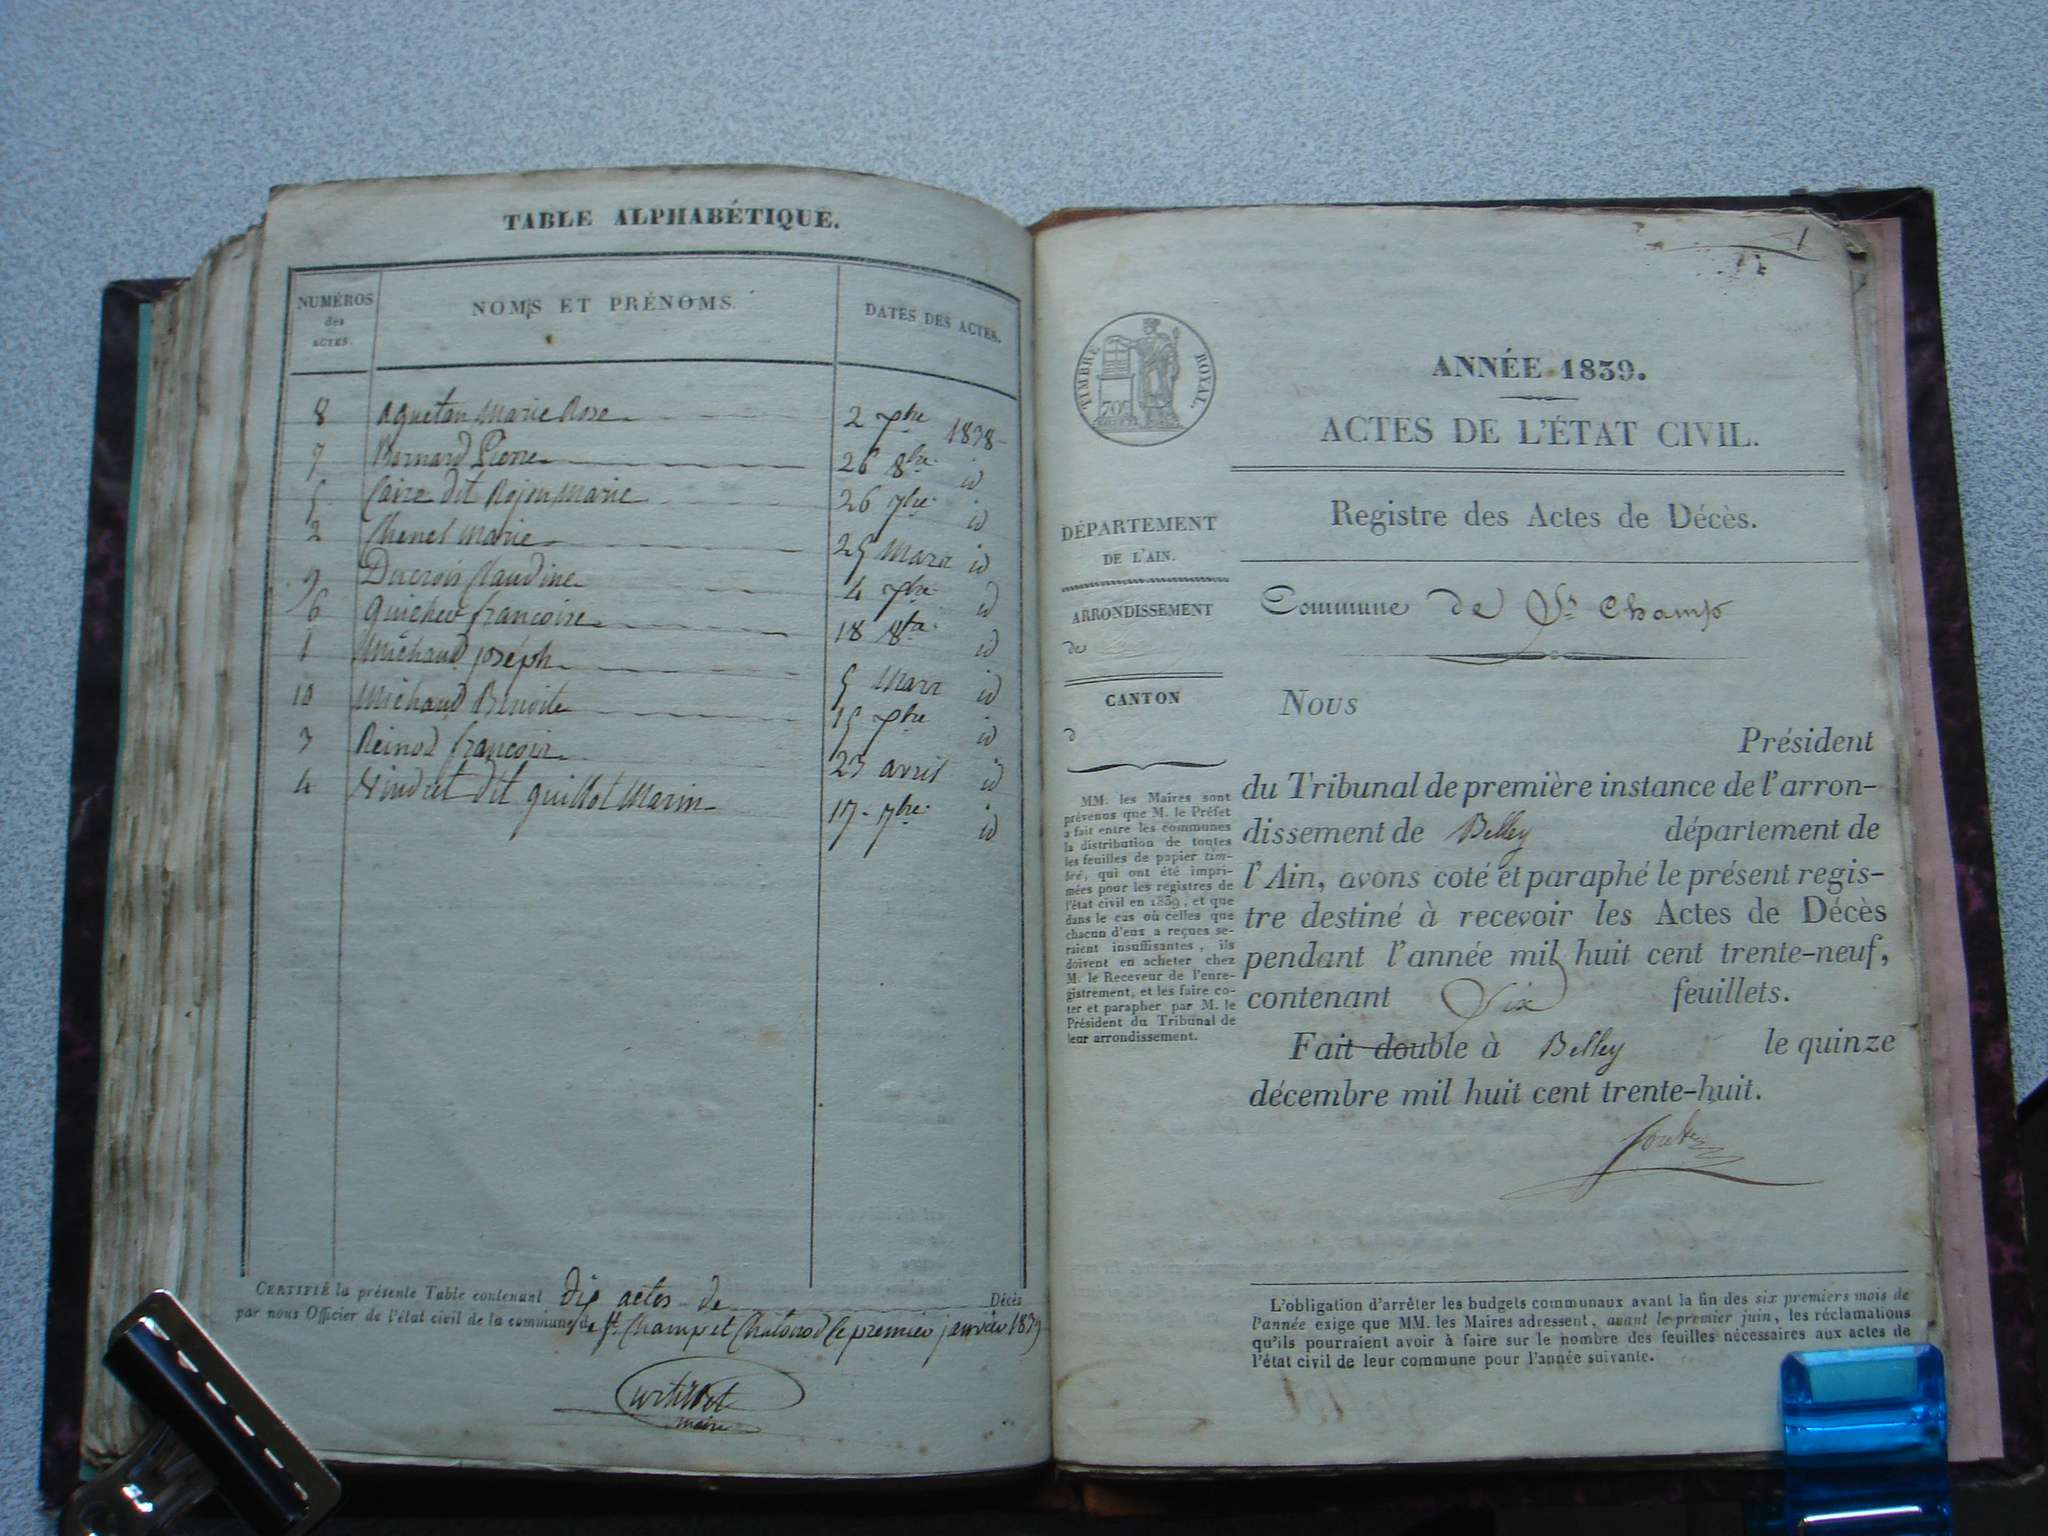 TABLE ALPHABÉTIQUE.
NUMÉROS
des
ACTES.
NOMS ET PRÉNOMS.
DATES DES ACTES.
8 Aguetan Marie Rose 2 1838
7 Bernard Pierre 26 8bre id
5 Caire dit Rojon Marie 26 7bre id
2 Chenel Marie 25 Mars id
9 Ducrois Claudine 4 id
6 françoise 18 id
1 Michaud joséph 5 Mars id
10 Michaud Benoite 15 id
3 Reinod françois 23 avril id
4 dit guillot Marin 17 7bre id
CERTIFIÉ la présente Table contenant dix actes de Décès
par nous Officier de l'état civil de la commune de St. Champ et Chatonod le premier janvier 1839
maire
1
TIMBRE ROYAL.
70c
ANNÉE 1839.
ACTES DE L'ÉTAT CIVIL.
Registre des Actes de Décès.
DÉPARTEMENT
DE L'AIN.
ARRONDISSEMENT
de
CANTON
d
MM. les Maires sont
prévenus que M. le Préfet
a fait entre les communes
la distribution de toutes
les feuilles de papier tim-
bré, qui ont été impri-
mées pour les registres de
l'état civil en 1839, et que
dans le cas où celles que
chacun d'eux a reçues se-
raient insuffisantes, ils
doivent en acheter chez
M. le Receveur de l'enre-
gistrement, et les faire co-
ter et parapher par M. le
Président du Tribunal de
leur arrondissement.
Commune de St Champ
Nous
Président
du Tribunal de première instance de l'arron-
dissement de Belley département de
l'Ain, avons coté et paraphé le présent regis-
tre destiné à recevoir les Actes de Décès
pendant l'année mil huit cent trente-neuf,
contenant Six feuillets.
Fait double à Belley le quinze
décembre mil huit cent trente-huit.
L'obligation d'arrêter les budgets communaux avant la fin des six premiers mois de
l'année exige que MM. les Maires adressent, avant le premier juin, les réclamations
qu'ils pourraient avoir à faire sur le nombre des feuilles nécessaires aux actes de
l'état civil de leur commune pour l'année suivante.